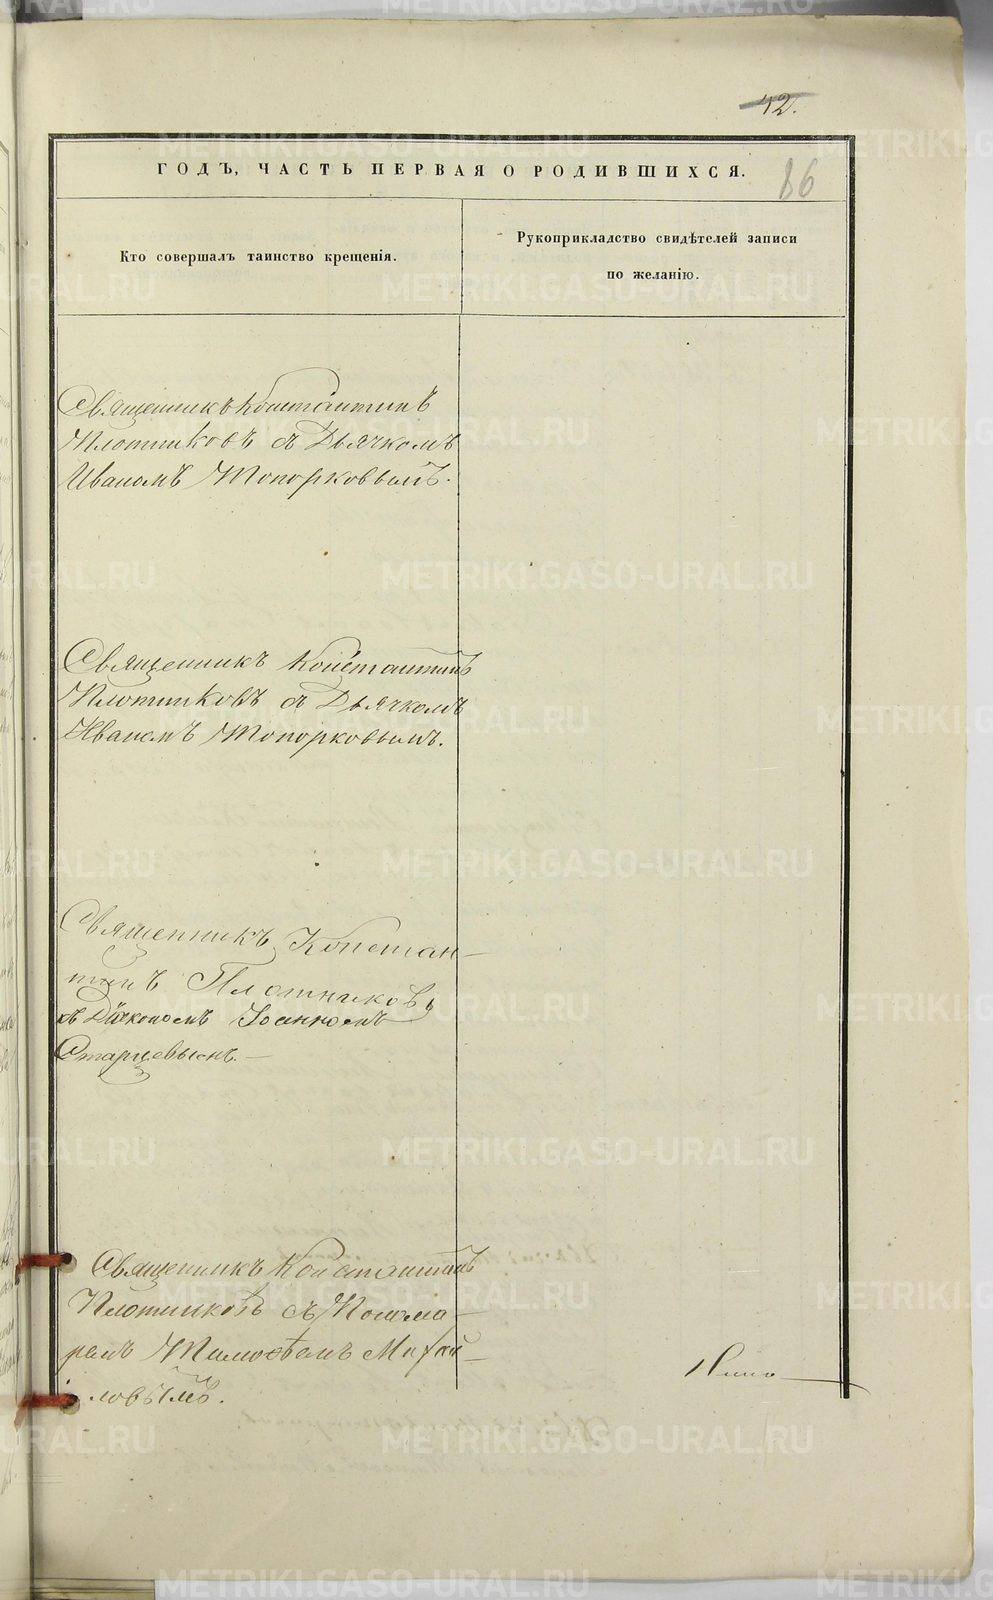 42.
ГОДЪ, ЧАСТЬ ПЕРВАЯ О РОДИВШИХСЯ.
86
Кто совершалъ таинство крещенія.
Рукоприкладство свидѣтелей записи
по желанію.
Священникъ Константинъ
Плотниковъ съ Дьячкомъ
Иваномъ Топорковымъ.
Священникъ Константинъ
Плотниковъ съ Дьячкомъ
Иваномъ Топорковымъ.
Священникъ Констан-
тинъ Плотниковъ
съ Діякономъ Іоанномъ
Старцевымъ.
Священникъ Константинъ
Плотниковъ съ Понома-
ремъ Тимоѳеемъ Михай-
ловымъ.
METRIKI.GASO-URAL.RU